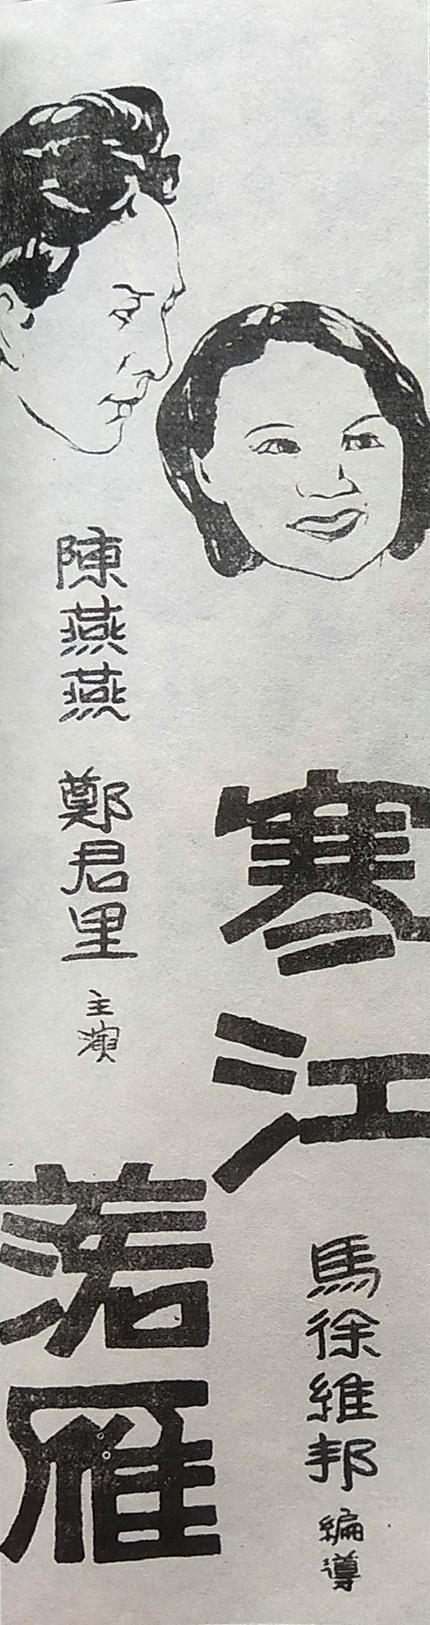 寒江
落雁
馬徐維邦 編導
陳燕燕 鄭君里 主演